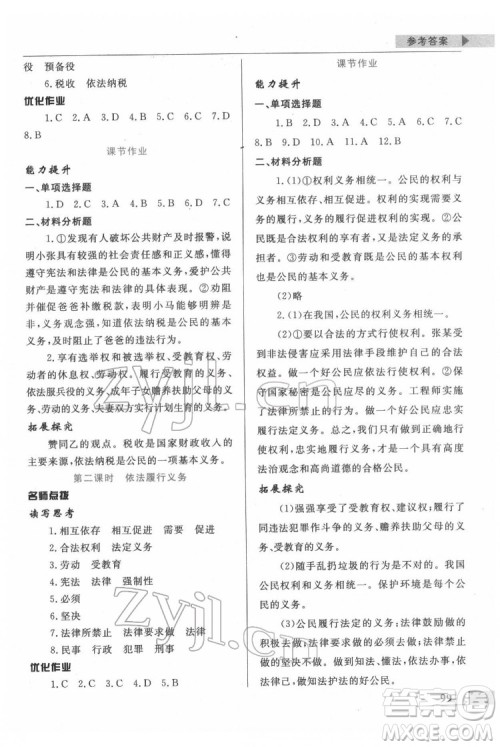 参考答案
役　预备役
6.税收　依法纳税
优化作业
1.C　2.A　3.A　4.B　5.C　6.D　7.D
8.B
课节作业
能力提升
一、单项选择题
1.D　2.C　3.A　4.B　5.B　6.C
二、材料分析题
1.①发现有人破坏公共财产及时报警,说
明小张具有较强的社会责任感和正义感,懂得
遵守宪法和法律是公民的基本义务,爱护公共
财产是遵守宪法和法律的基本要求。②及时提
醒并阻止爸爸偷税的行为,说明小马能够增强
纳税人意识,依法纳税是公民的基本义务,积极
采取行动阻止了爸爸的违法行为。
2.享有选举与被选举权、受教育权、劳
动者的休息权、人格尊严权;履行劳动的义务、
依法服兵役的义务、成年子女赡养扶助父母的
义务、夫妻双方实行计划生育的义务。
拓展探究
赞同乙的观点。税收是国家财政收入的
主要来源,依法纳税是公民的一项基本义务。
第二课时　依法履行义务
名师点拨
读写思考
1.相互依存　相互促进　相统一
2.合法权利　法定义务
3.劳动　受教育
4.宪法　法律　强制性
5.仅仅　必须
6.坚决
7.法律所禁止　法律要求做　法律鼓励做
8.民事　行政　犯罪　刑事
优化作业
1.C　2.C　3.A　4.D　5.D
课节作业
能力提升
一、单项选择题
1.C　2.D　3.D　4.B　5.C　6.D　7.C
8.B　9.B　10.B
二、材料分析题
1.(1)①权利义务相统一。公民的权利与
义务相互依存、相互促进。②公民既是合法权
利的享有者,又是法定义务的承担者。③劳动和受教育既是公民的基本权利,
也是公民的基本义务。
(2)略
2.(1)在我国,公民的权利义务相统一。
(2)公民要以合法的方式行使权利。张某受
到非法侵害应采用法律手段维护自己的合法权
益。做一个好公民应正确行使权利。②保
守国家秘密是公民应尽的义务。工程师实施
了法律所禁止的行为。做一个好公民应自觉履
行法定义务。③作为公民,我们不仅要增强权
利意识,依法行使权利,而且要增强义务观念,
自觉履行法定的义务。④做一个有高度法治意
识和高尚道德的合格公民。
拓展探究
(1)强强享受了受教育权、维权,履行了
同违法犯罪作斗争的义务、赡养扶助父母的义
务、受教育的义务。
(2)随手乱扔垃圾的行为是不对的。我国
公民权利和义务相统一。保护环境是每个公民
的责任。
(3)公民履行法定的义务:法律鼓励做的
积极去做,法律要求做的必须去做,法律禁止做
的坚决不做。
99
Zyjl.cn
Zyjl.cn